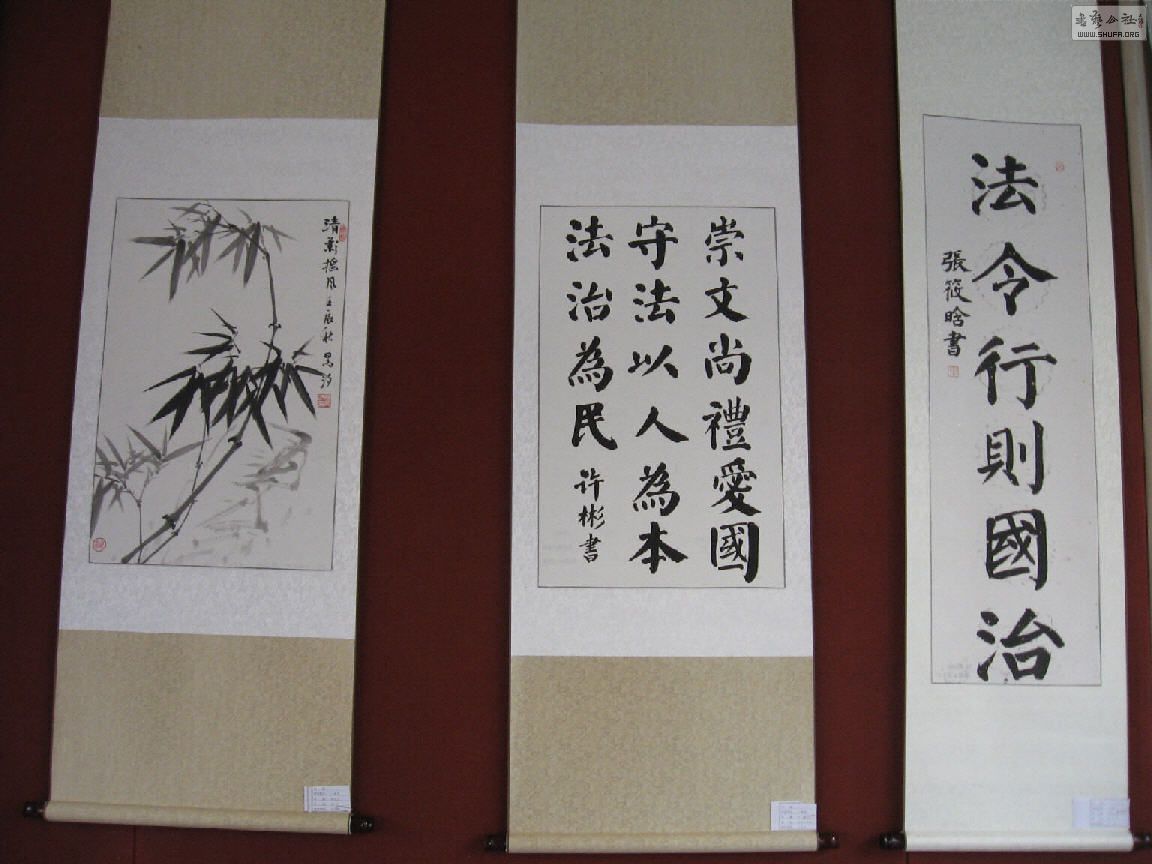 法令行則國治
張筱晗書
崇文尚禮愛國
守法以人為本
法治為民
许彬書
清影搖风 壬辰秋
書藝公社
WWW.SHUFA.ORG